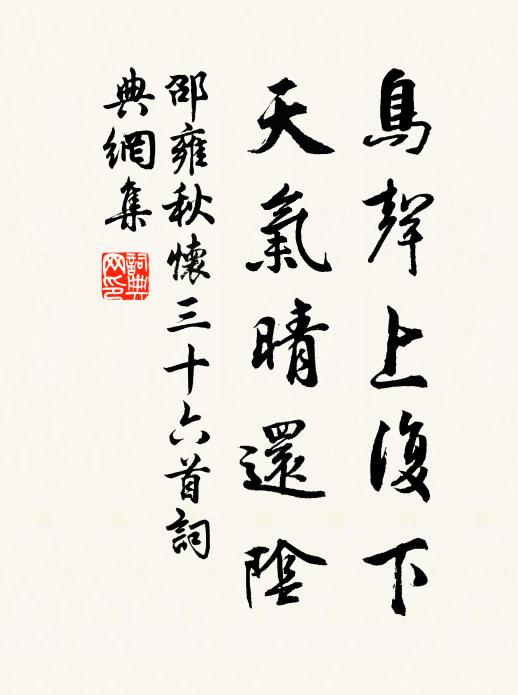 鳥聲上復下
天氣晴還陰
邵雍秋懷三十六首詞
典網集
詞典
网印